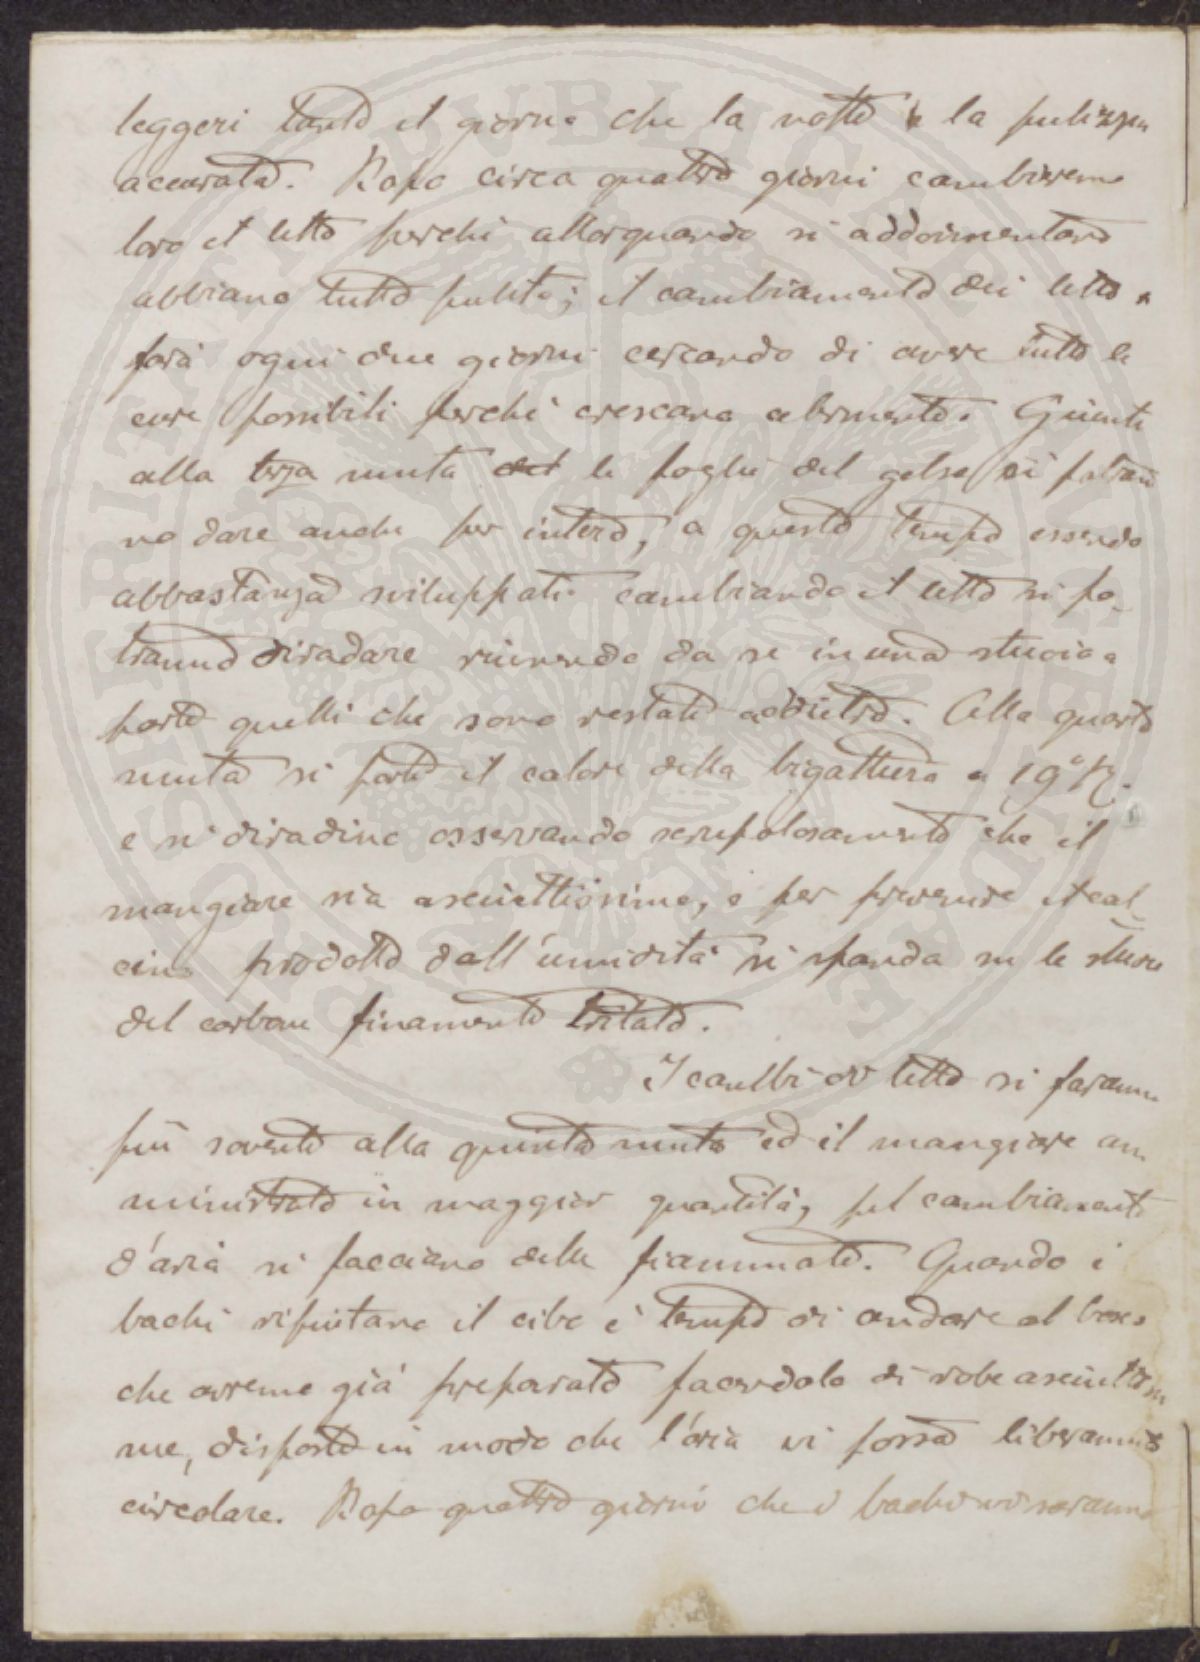 leggeri tanto il giorno che la notte e la pulizzia
accurata. Dopo circa quattro giorni cambieremo
loro il letto perchè allorquando si addormentano
abbiano tutto pulito; il cambiamento dei letti si
farà ogni due giorni cercando di avere tutte le
cure possibili perchè crescano alermente. Giunti
alla terza muta del le foglie del gelso si potran
no dare anche per intero, a questo tempo essendo
abbastanza sviluppati cambiando il letto si po-
tranno diradare riunendo da se in una stuoia a
parte quelli che sono restati addietro. Alla quarta
muta si porti il calore della bigattiera a 19° R.
e si diradino osservando scrupolosamente che il
mangiare sia asciuttissimo, e per prevenire il cal-
cino prodotto dall'umidità si spanda su le stuoie
del carbone finamente tritato.
I cambi di letto si faranno
più sovente alla quinta muta ed il mangiare am
ministrato in maggior quantità, pel cambiamento
d'aria si facciano delle fiammate. Quando i
bachi rifiutano il cibo è tempo di andare al bosco
che avremo già preparato facendolo di robe asciuttissi
me, disposte in modo che l'aria vi possa liberamente
circolare. Dopo quattro giorni che i bachi vi saranno
CONSERVATI PVBLICAE VTILITATI